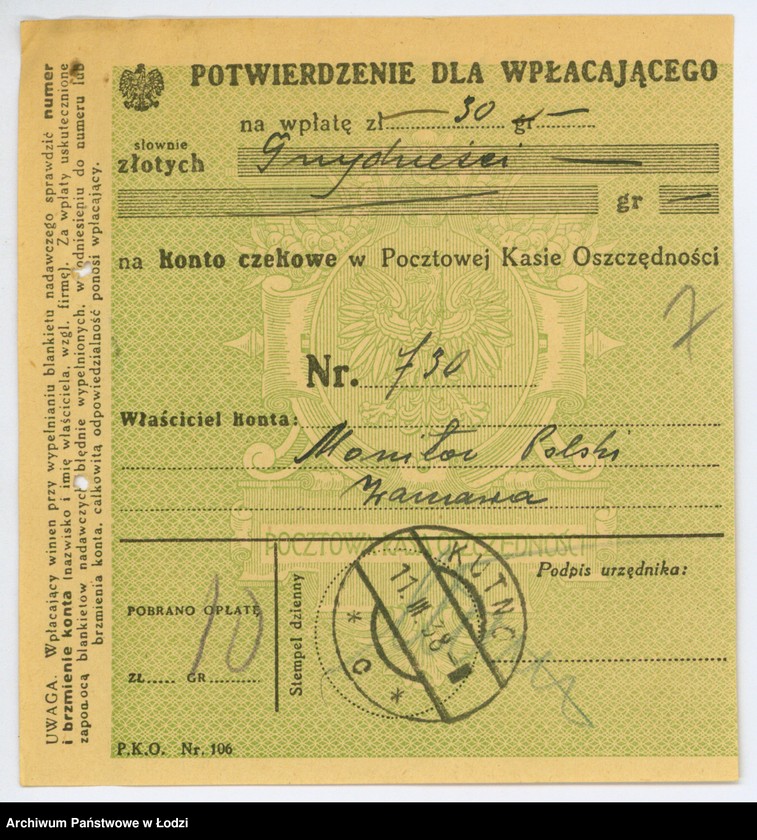 POTWIERDZENIE DLA WPŁACAJĄCEGO
na wpłatę zł 30 gr —
słownie
złotych Trzydzieści —
gr —
na konto czekowe w Pocztowej Kasie Oszczędności
7
Nr. 730
Właściciel konta:
Monitor Polski
Warszawa
POCZTOWA KASA OSZCZĘDNOŚCI
POBRANO OPŁATĘ
10
ZŁ..... GR
Stempel dzienny
KUTNO
11. III. 38
* c *
Podpis urzędnika:
P.K.O. Nr. 106
UWAGA. Wpłacający winien przy wypełnianiu blankietu nadawczego sprawdzić numer
i brzmienie konta (nazwisko i imię właściciela, wzgl. firmę). Za wpłaty uskutecznione
zapomocą blankietów nadawczych błędnie wypełnionych, w odniesieniu do numeru lub
brzmienia konta, całkowitą odpowiedzialność ponosi wpłacający.
Archiwum Państwowe w Łodzi